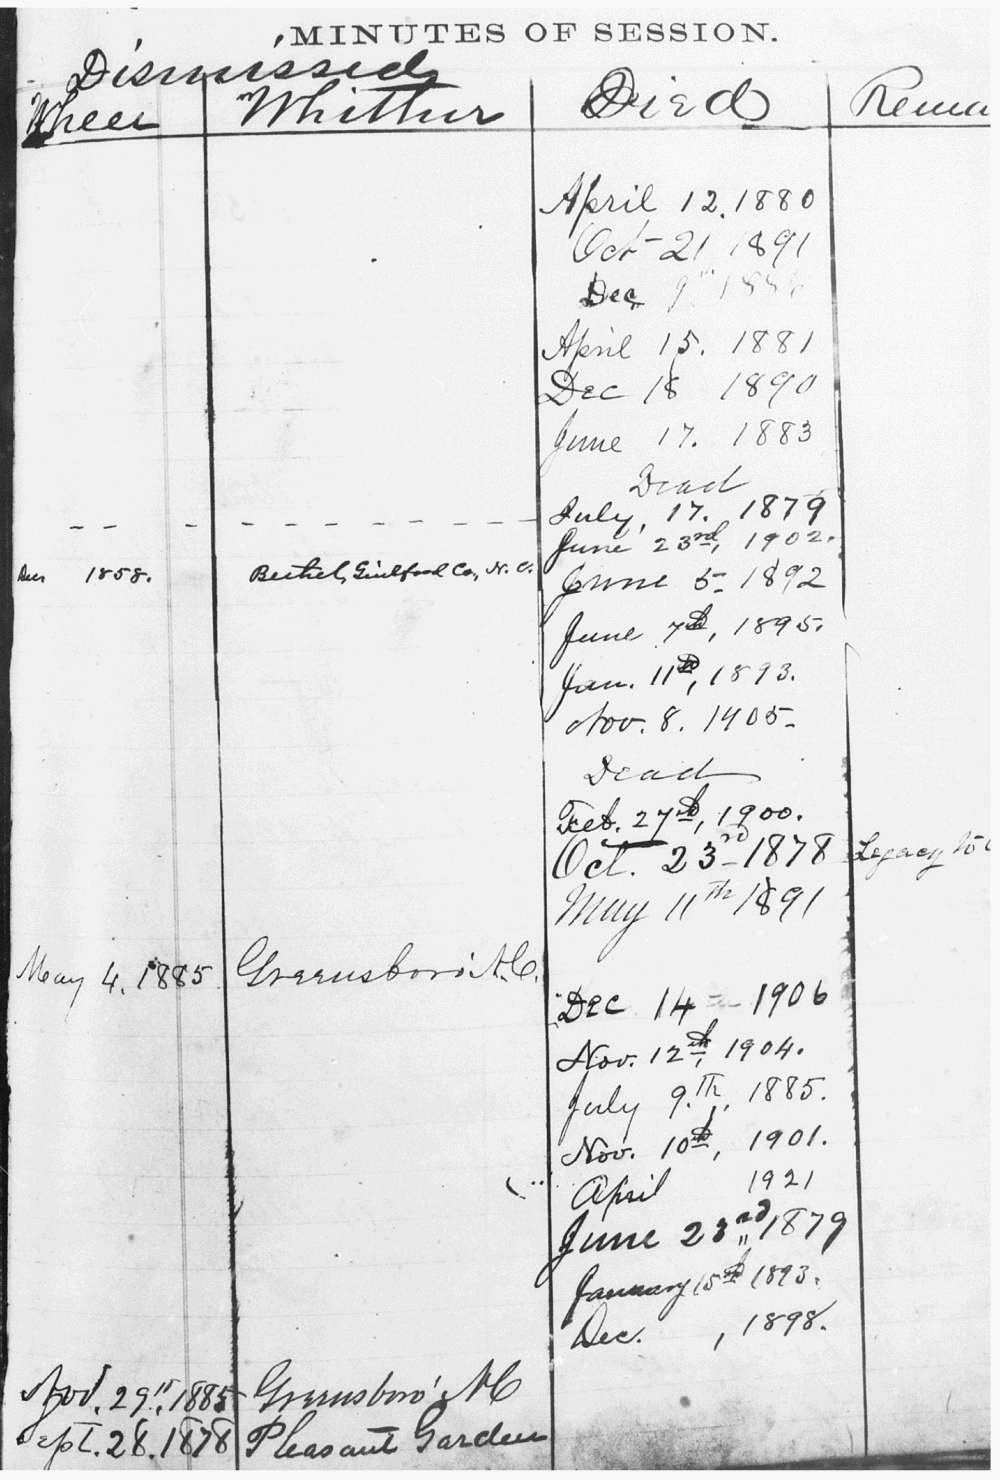 MINUTES OF SESSION.
Dismissed
When Whither Died Rema
April 12. 1880
Oct 21 1891
Dec 9th
April 15. 1881
Dec 18 1890
June 17. 1883
Dead
July, 17. 1879
June 23rd, 1902.
1858. Bethel, Guilford Co., N.C. June 5- 1892
June 7th, 1895.
Jan. 11th, 1893.
Nov. 8. 1905-
Dead
Feb. 27th, 1900.
Oct. 23rd- 1878 Legacy
May 11th 1891
May 4. 1885 Greensboro' N.C.
Dec 14 - 1906
Nov. 12th, 1904.
July 9.Th, 1885.
Nov. 10th, 1901.
April 1921
June 23rd 1879
January 15th 1893.
Dec. , 1898.
Nov. 29th, 1885 Greensboro' NC
Sept. 28. 1878 Pleasant Garden